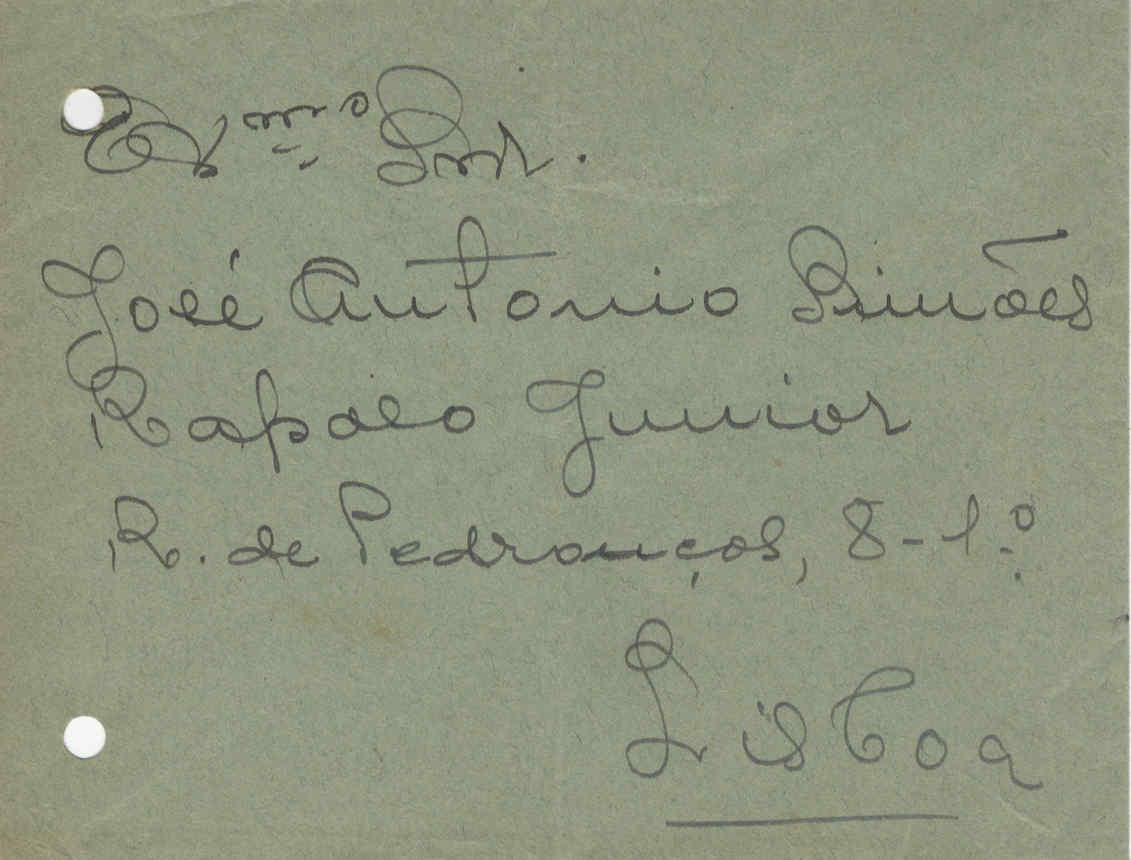 Exmo Snr.
José Antonio Simões
Raposo Junior
R. de Pedrouços, 8-1.º
Lisboa